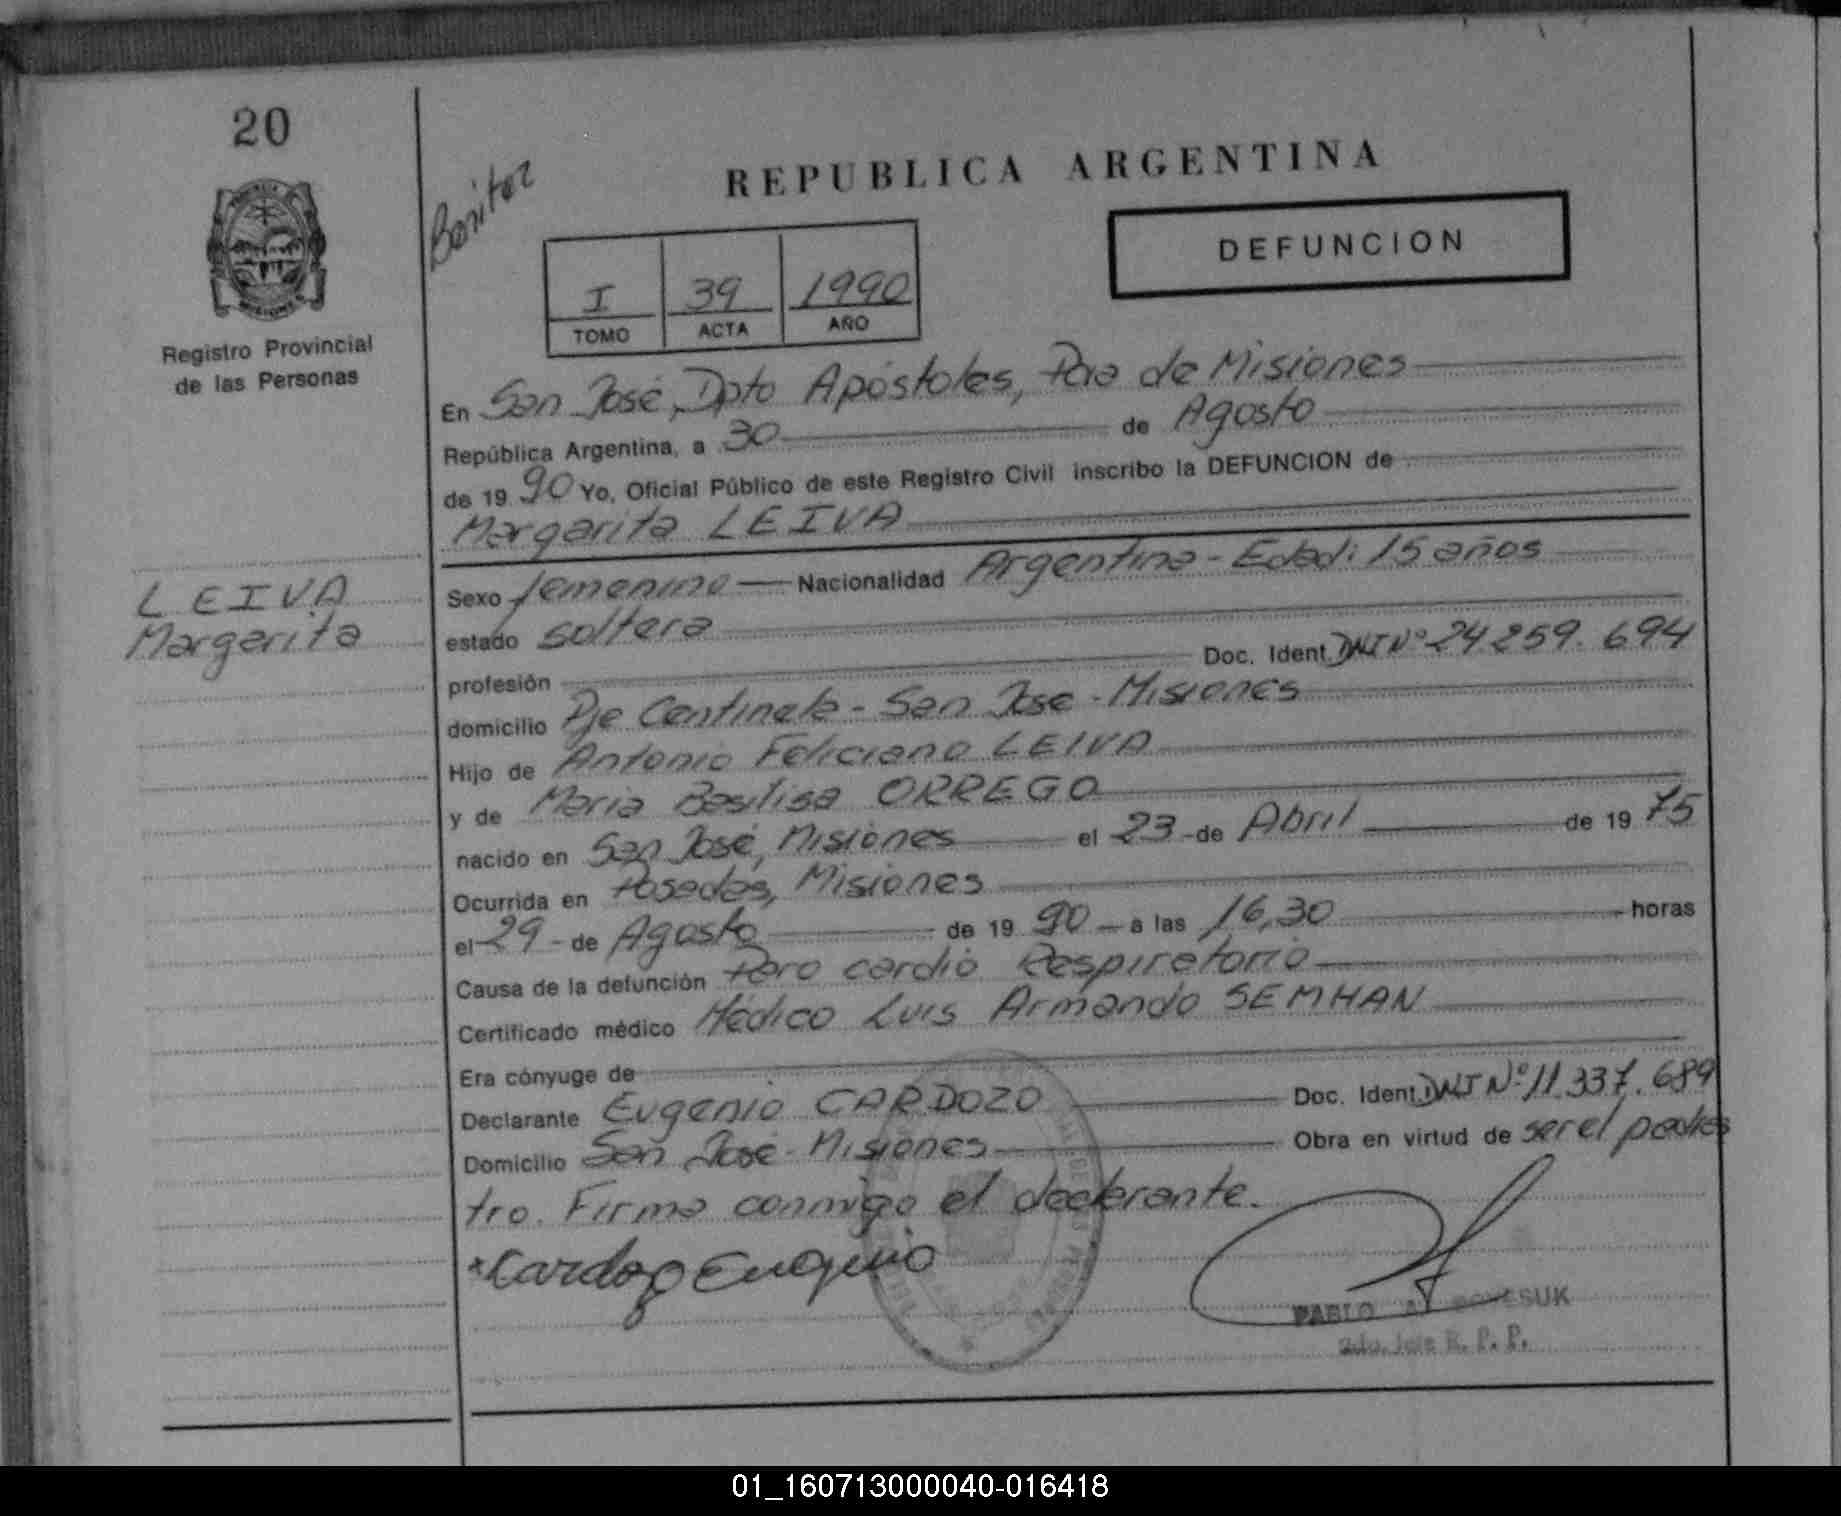 20
Benitez
REPUBLICA ARGENTINA
DEFUNCION
I 39 1990
TOMO ACTA AÑO
Registro Provincial
de las Personas
En San José, Dpto Apóstoles, Pcia de Misiones
República Argentina, a 30 de Agosto
de 19 90 Yo, Oficial Público de este Registro Civil inscribo la DEFUNCION de
Margarita LEIVA
LEIVA
Margarita
Sexo femenino Nacionalidad Argentina - Edad: 15 años
estado soltera
profesión Doc. Ident. DNI Nº 24.259.694
domicilio Pje Centinela - San José - Misiones
Hijo de Antonio Feliciano LEIVA
y de Maria Basilisa ORREGO
nacido en San José, Misiones el 23 de Abril de 19 75
Ocurrida en Posadas, Misiones
el 29 de Agosto de 19 90 a las 16,30 horas
Causa de la defunción Paro cardio Respiratorio
Certificado médico Médico Luis Armando SEMHAN
Era cónyuge de
Declarante Eugenio CARDOZO Doc. Ident. DNI Nº 11.337.689
Domicilio San José - Misiones Obra en virtud de ser el padras
tro. Firma conmigo el declarante.
Cardozo Eugenio
PABLO A.
R. P. P.
01_160713000040-016418